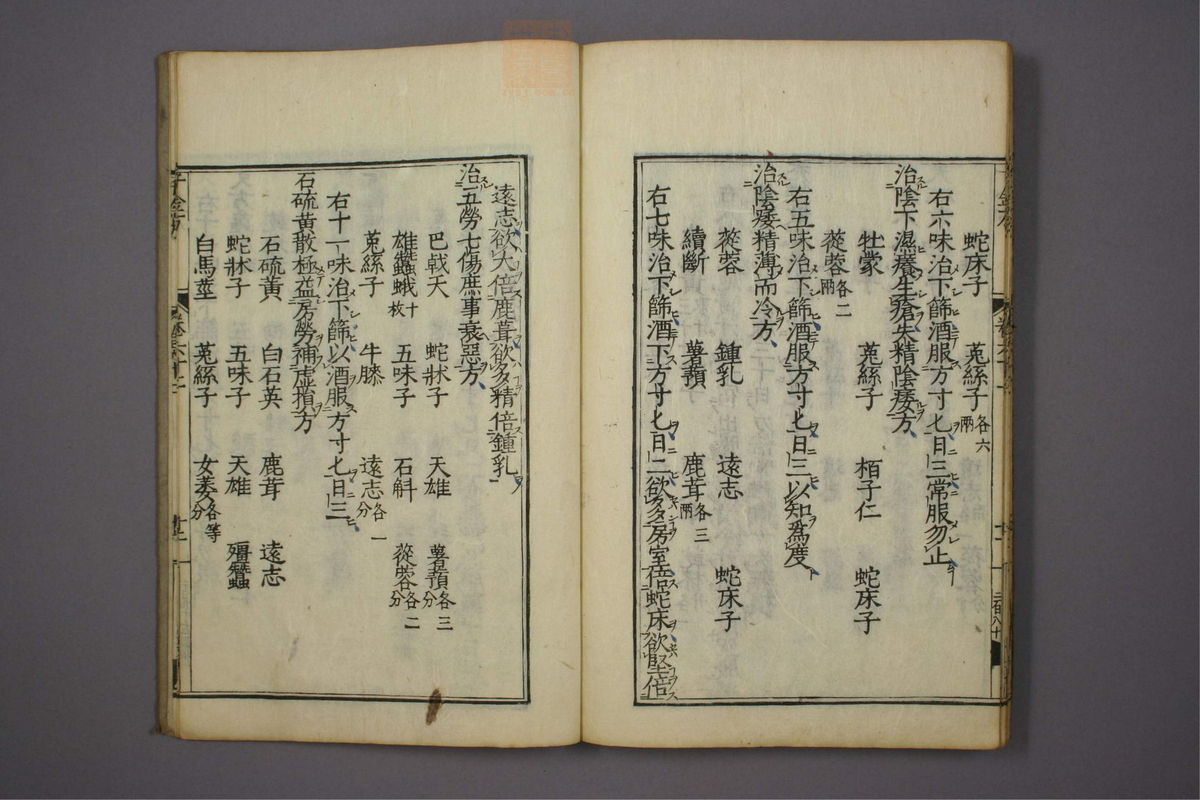 蛇床子 菟絲子各六兩
右六味治下篩酒服方寸匕日三常服勿止
治陰下濕癢生瘡失精陰痿方
牡蒙 菟絲子 栢子仁 蛇床子
蓯蓉各二兩
右五味治下篩酒服方寸匕日三以知爲度
治陰痿精薄而冷方
蓯蓉 鍾乳 遠志 蛇床子
續斷 薯蕷 鹿茸各三兩
右七味治下篩酒下方寸匕日二欲多房室倍蛇床欲堅倍
遠志欲大倍鹿茸欲多精倍鍾乳
治五勞七傷庶事衰惡方
巴戟天 蛇牀子 天雄 薯蕷各三分
雄蠶蛾十枚 五味子 石斛 蓯蓉各二分
菟絲子 牛膝 遠志各一分
右十一味治下篩以酒服方寸匕日三
石硫黄散極益房勞補虚損方
石硫黄 白石英 鹿茸 遠志
蛇牀子 五味子 天雄 殭蠶
白馬莖 菟絲子 女萎各等分